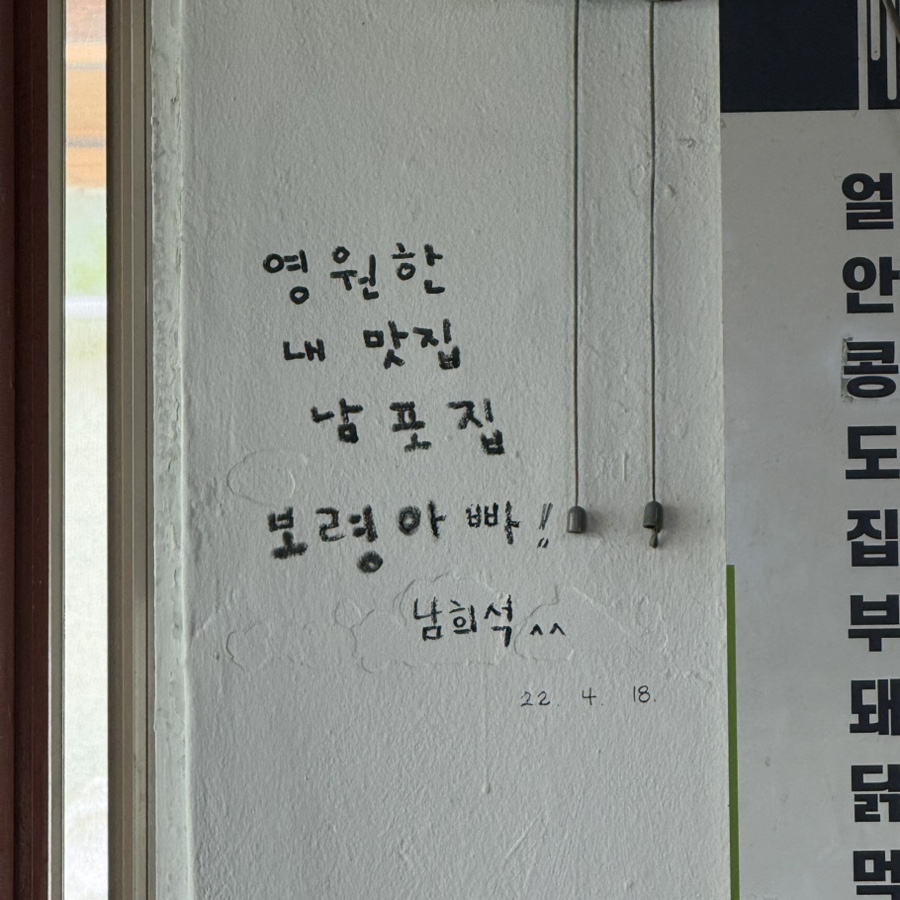 영원한
내 맛집
남포집
보령아빠!!
남희석 ^^
22. 4. 18.
얼
안
콩
도
집
부
돼
닭
먹